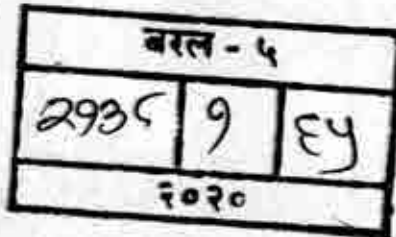 बरल - ५
२१३८ १ ६५
२०२०